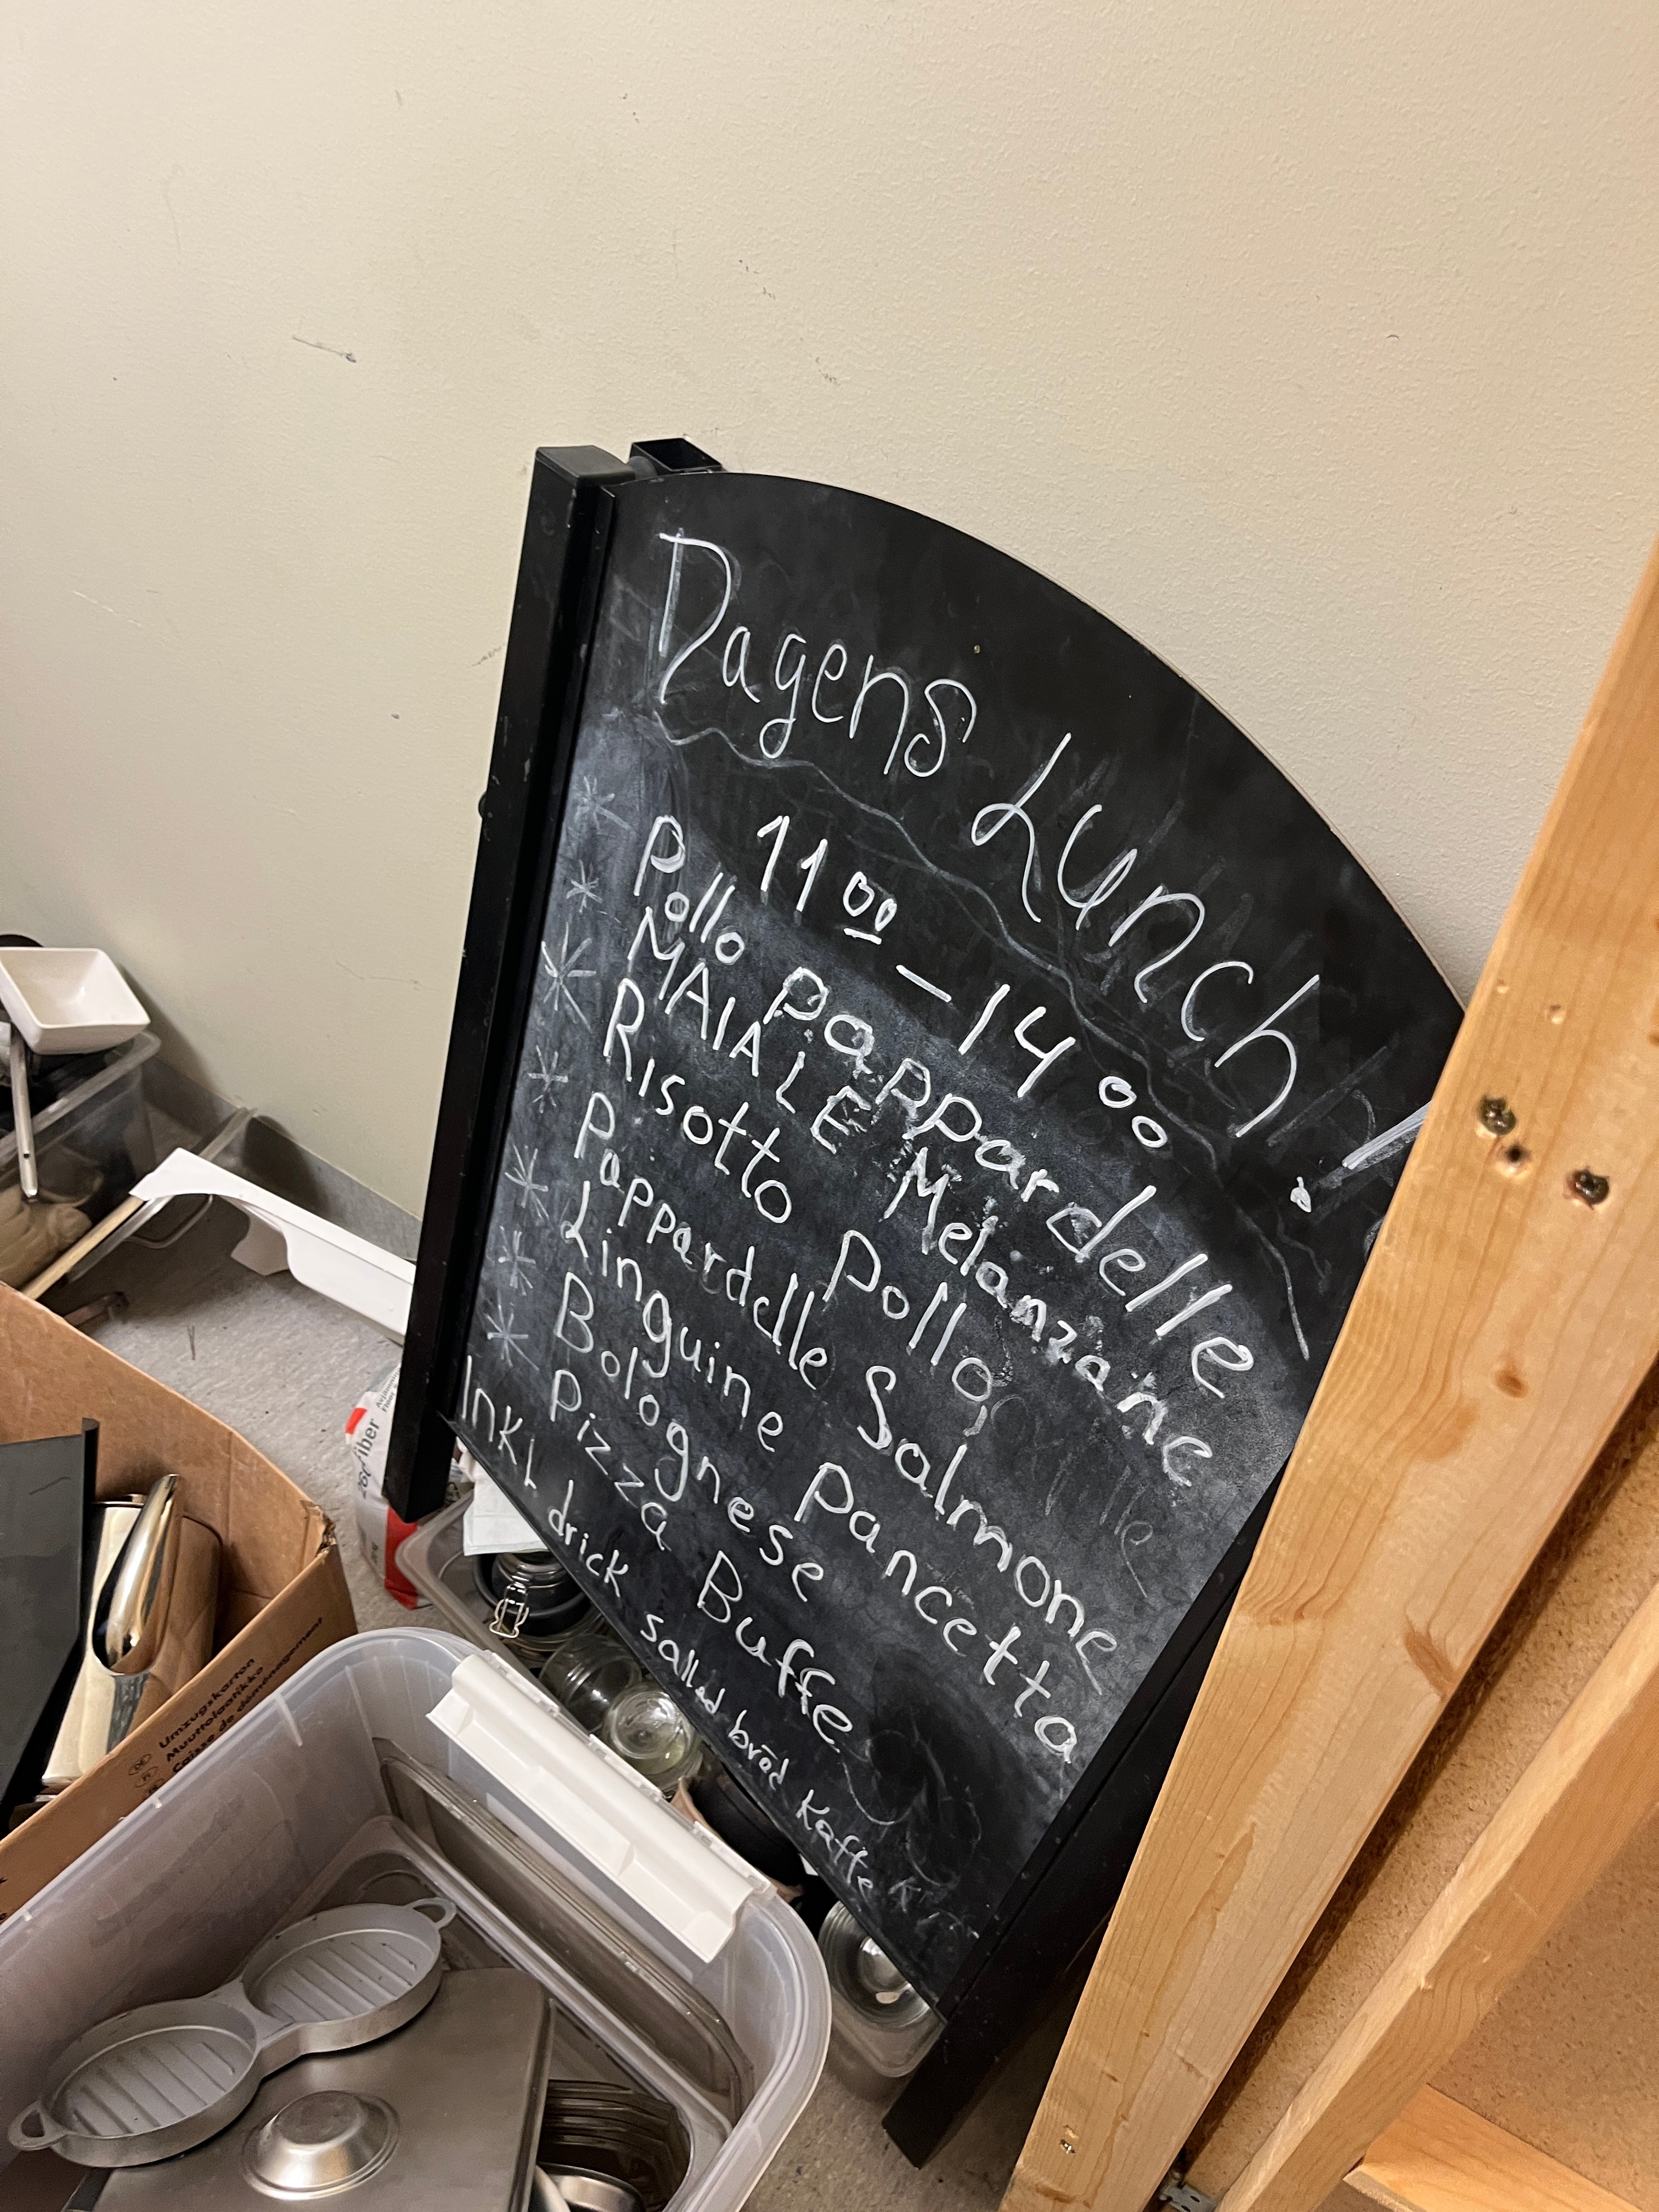 Dagens Lunch!
11 00 – 14 00
Pollo Pappardelle
MAIALE Melanzane
Risotto Pollo
Pappardelle Salmone
Linguine Pancetta
Bolognese
Pizza Buffe
INKL drick sallad bröd Kaffe
Umzugskarton
Muuttolaatikko
Caisse de déménagement